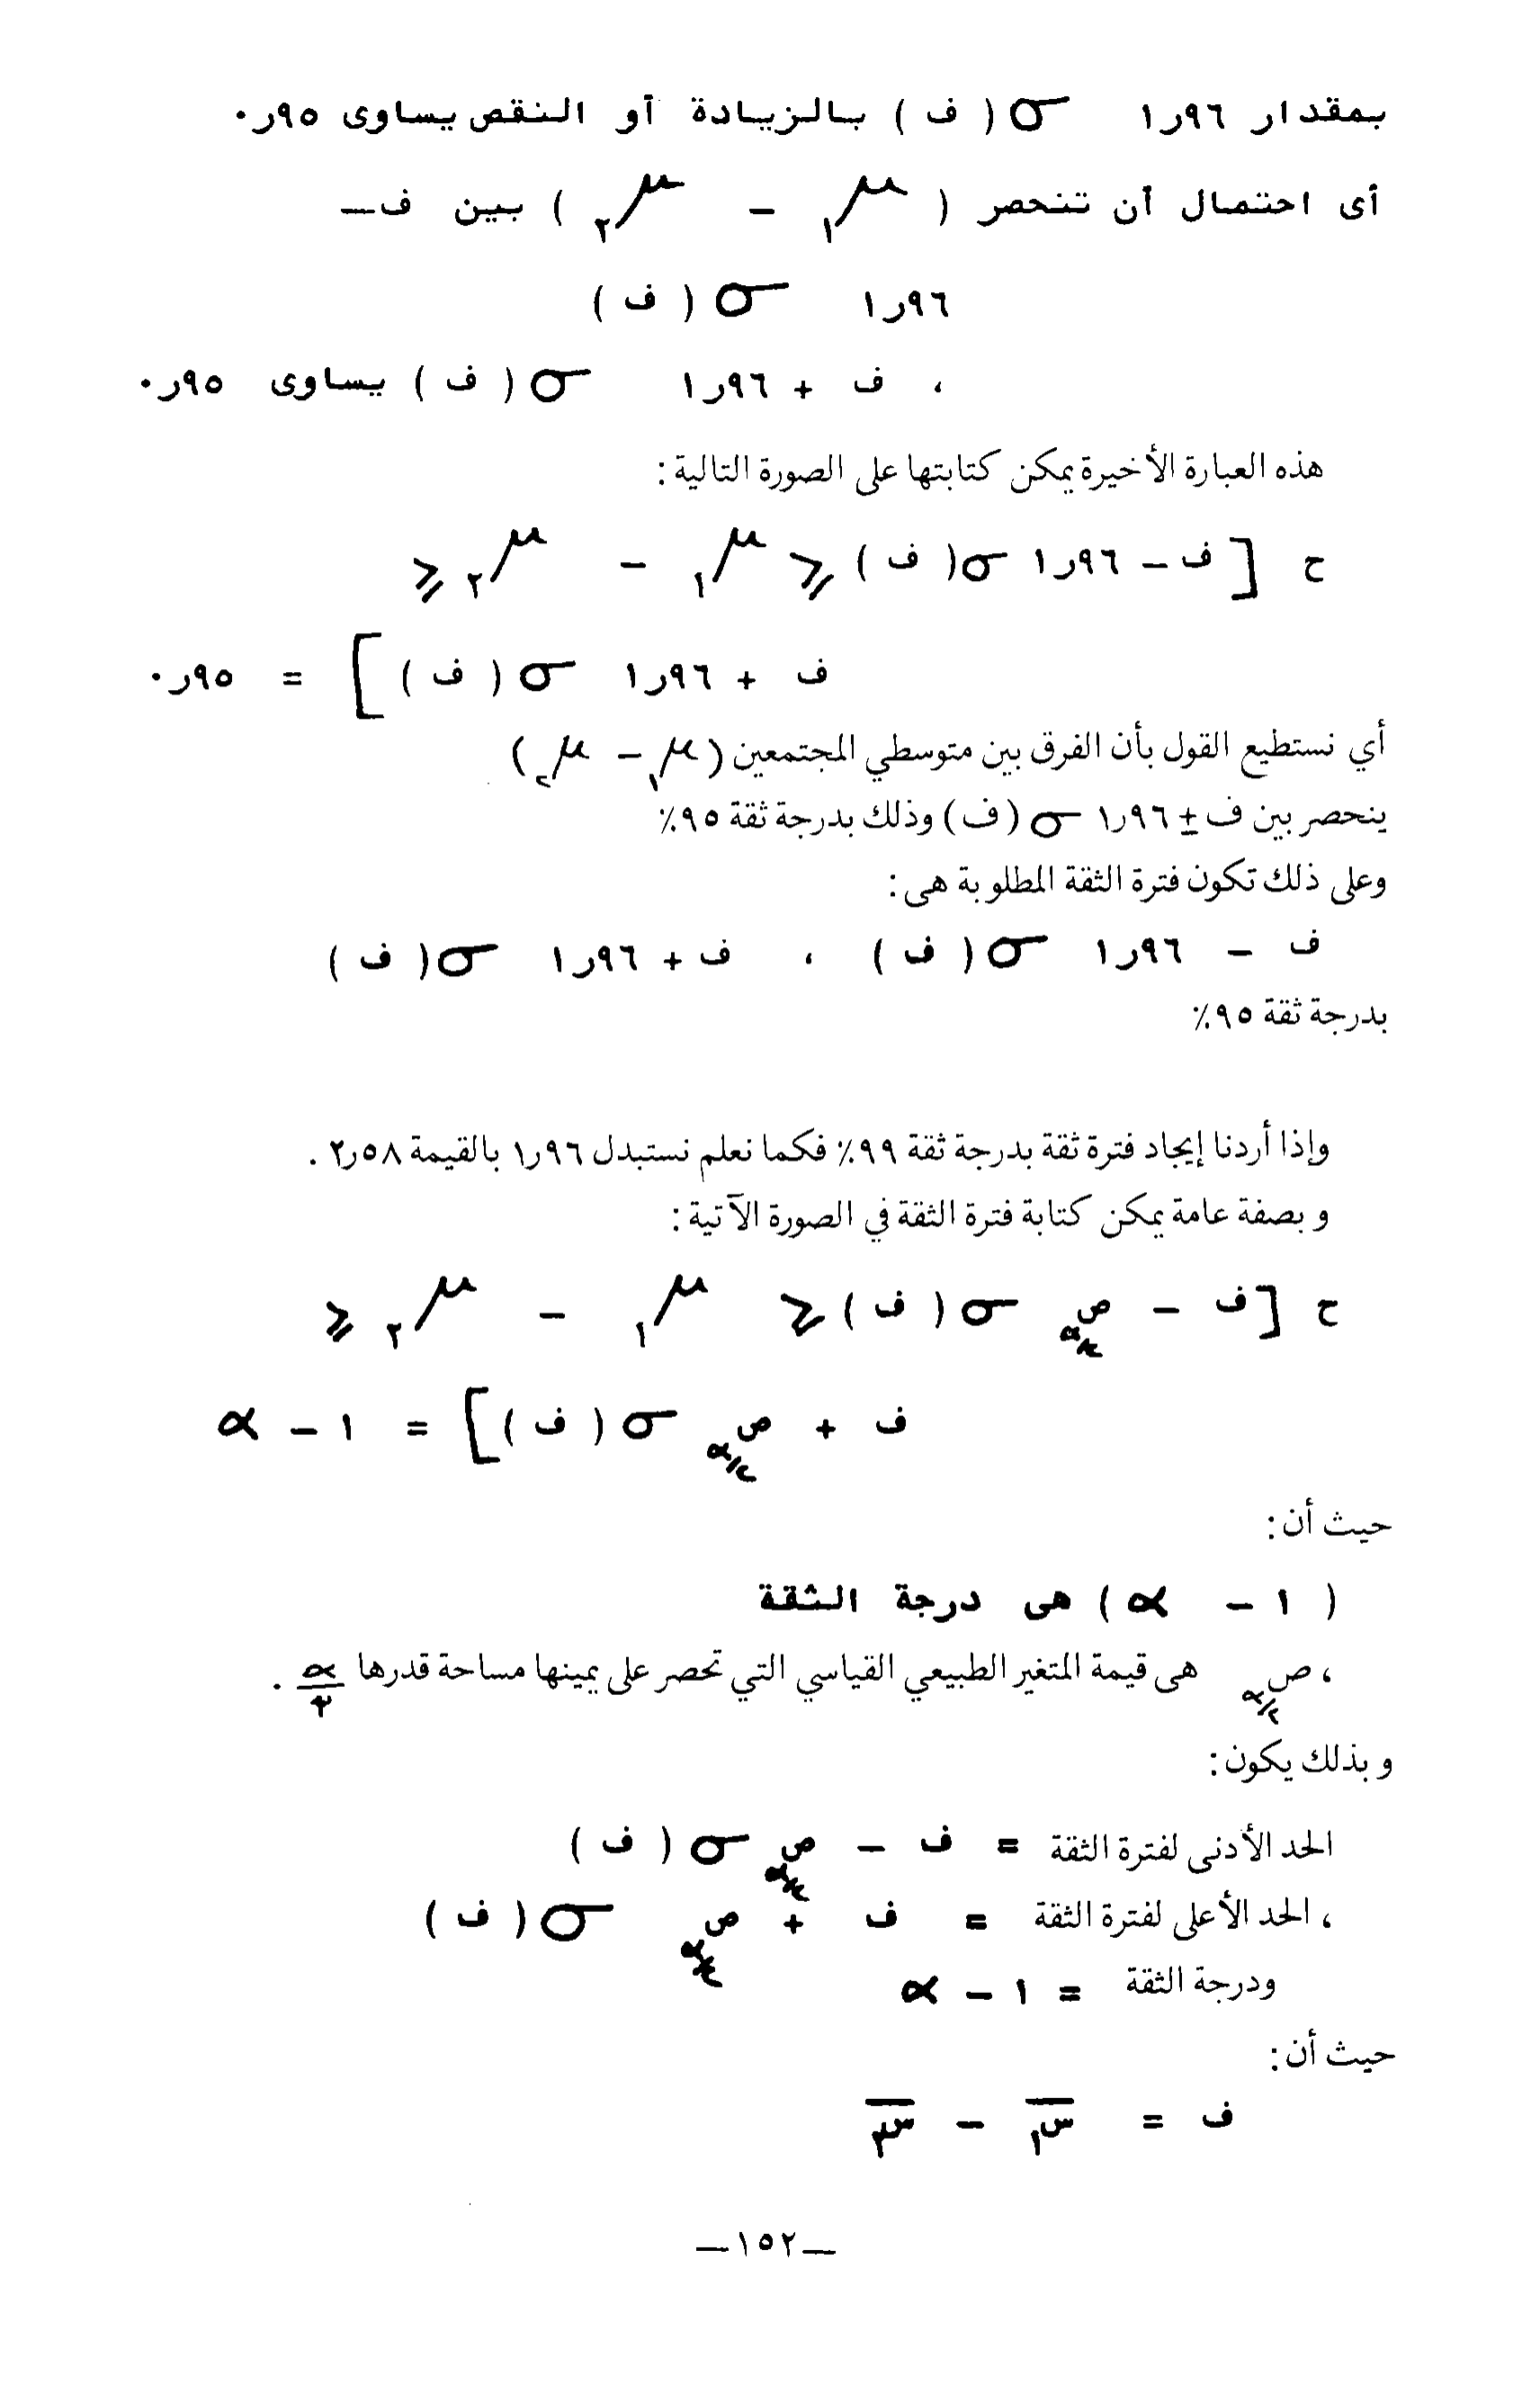 بمقدار ١٫٩٦ σ ( ف ) بالزيادة أو النقص يساوى ٠٫٩٥
أى احتمال أن تنحصر ( μ١ − μ٢ ) بين ف —
١٫٩٦ σ ( ف )
، ف + ١٫٩٦ σ ( ف ) يساوى ٠٫٩٥
هذه العبارة الأخيرة يمكن كتابتها على الصورة التالية :
ح [ ف − ١٫٩٦ σ ( ف ) ≥ μ١ − μ٢ ≥
ف + ١٫٩٦ σ ( ف ) ] = ٠٫٩٥
أي نستطيع القول بأن الفرق بين متوسطي المجتمعين ( μ١ − μ٢ )
ينحصر بين ف ± ١٫٩٦ σ ( ف ) وذلك بدرجة ثقة ٩٥٪
وعلى ذلك تكون فترة الثقة المطلوبة هى :
ف − ١٫٩٦ σ ( ف ) ، ف + ١٫٩٦ σ ( ف )
بدرجة ثقة ٩٥٪
وإذا أردنا إيجاد فترة ثقة بدرجة ثقة ٩٩٪ فكما نعلم نستبدل ١٫٩٦ بالقيمة ٢٫٥٨ .
وبصفة عامة يمكن كتابة فترة الثقة في الصورة الآتية :
ح [ ف − ص α/٢ σ ( ف ) ≥ μ١ − μ٢ ≥
ف + ص α/٢ σ ( ف ) ] = ١ − α
حيث أن :
( ١ − α ) هى درجة الثقة
، ص α/٢ هى قيمة المتغير الطبيعي القياسي التي تحصر على يمينها مساحة قدرها α/٢ .
وبذلك يكون :
الحد الأدنى لفترة الثقة = ف − ص α/٢ σ ( ف )
، الحد الأعلى لفترة الثقة = ف + ص α/٢ σ ( ف )
ودرجة الثقة = ١ − α
حيث أن :
ف = س̄١ − س̄٢
—١٥٢—